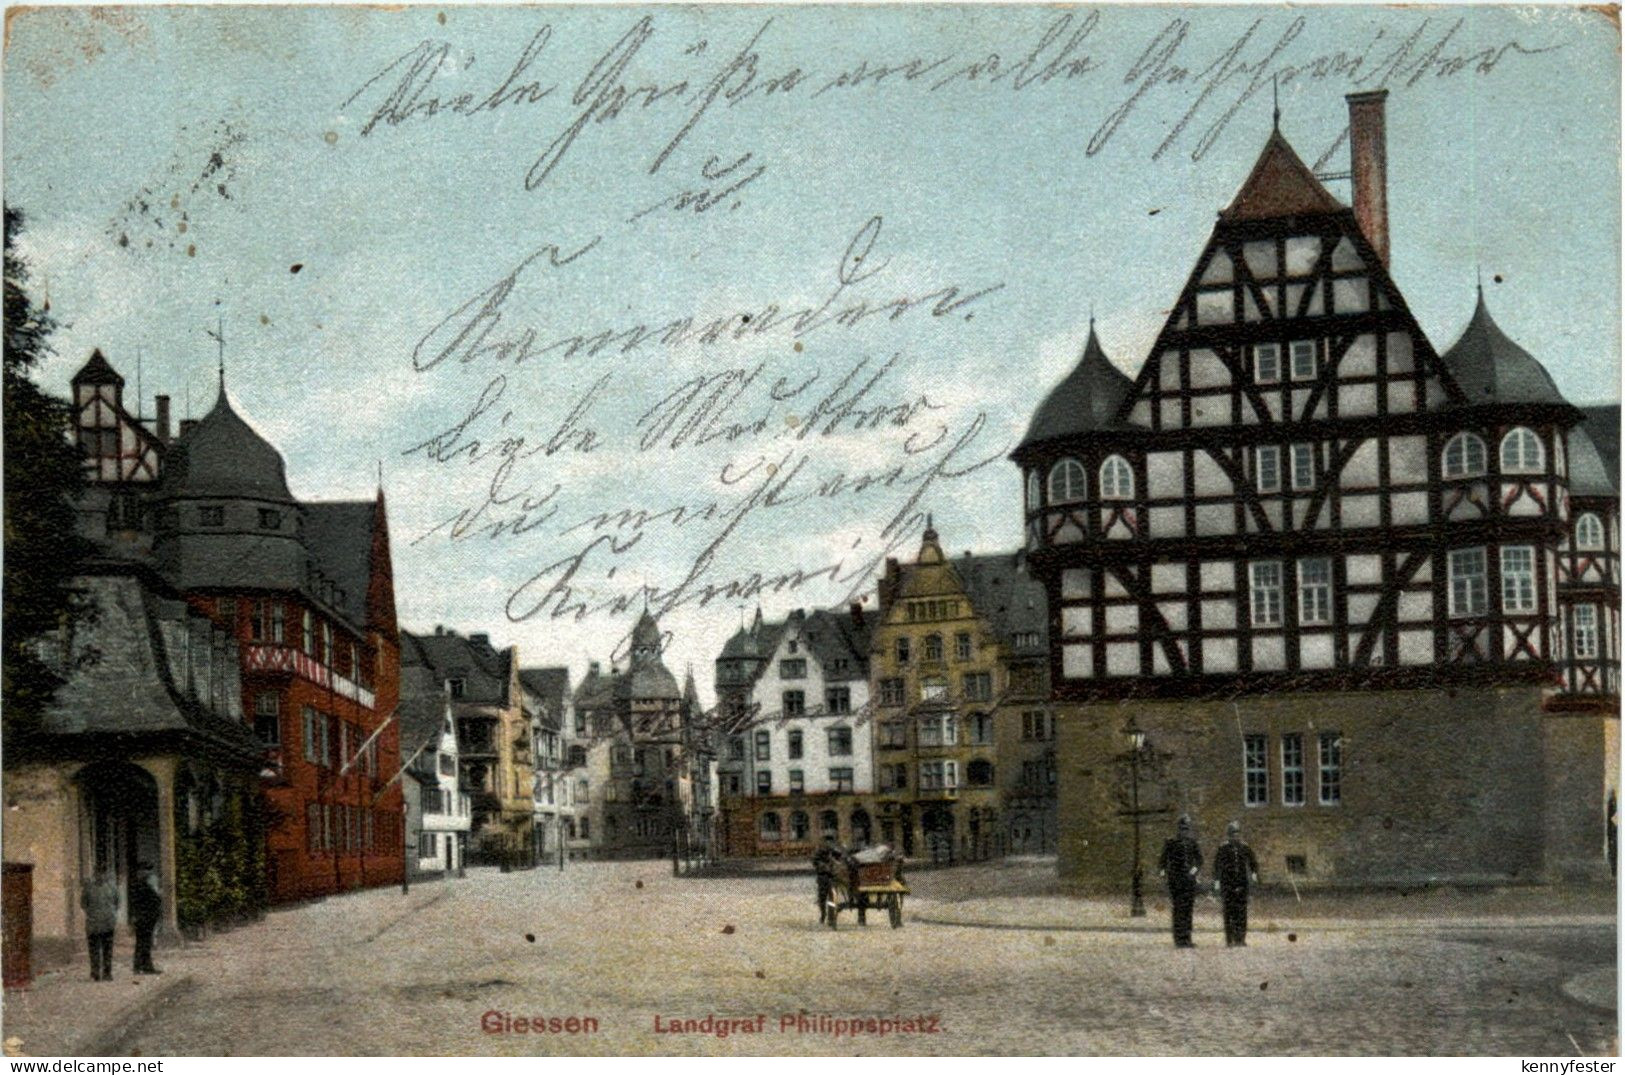 Viele Grüße an alle Geschwister
u.
Kameraden.
Liebe Mutter
du must auf
Kirchweih
Giessen Landgraf Philippsplatz.
www.delcampe.net
kennyfester